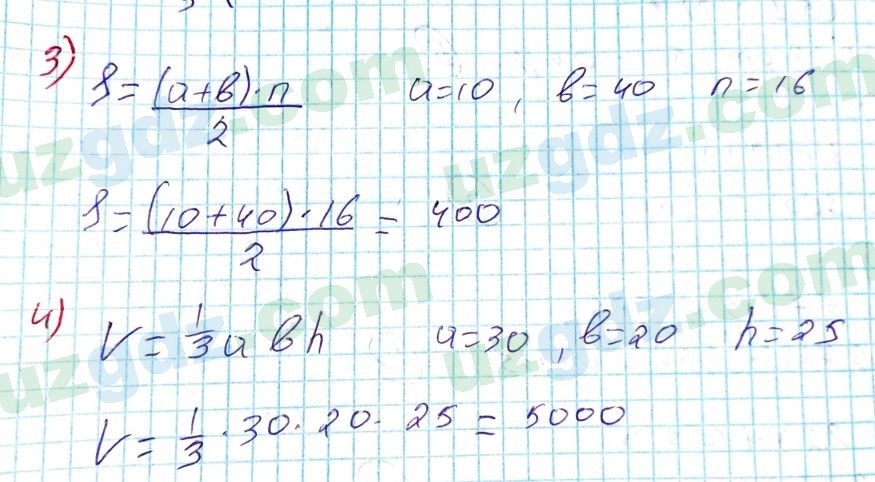 3) S = (a+b)·n / 2   a=10, b=40   n=16
S = (10+40)·16 / 2 = 400
4) V = 1/3 a b h   a=30, b=20   h=25
V = 1/3 · 30 · 20 · 25 = 5000
uzgdz.com
uzgdz.com
uzgdz.com
uzgdz.com